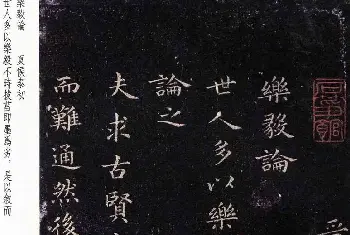 樂毅論
世人多以樂
論之
夫求古賢
而難通然後
樂毅論 夏侯泰初
世人多以樂毅不時拔莒即墨爲劣，是以敘而